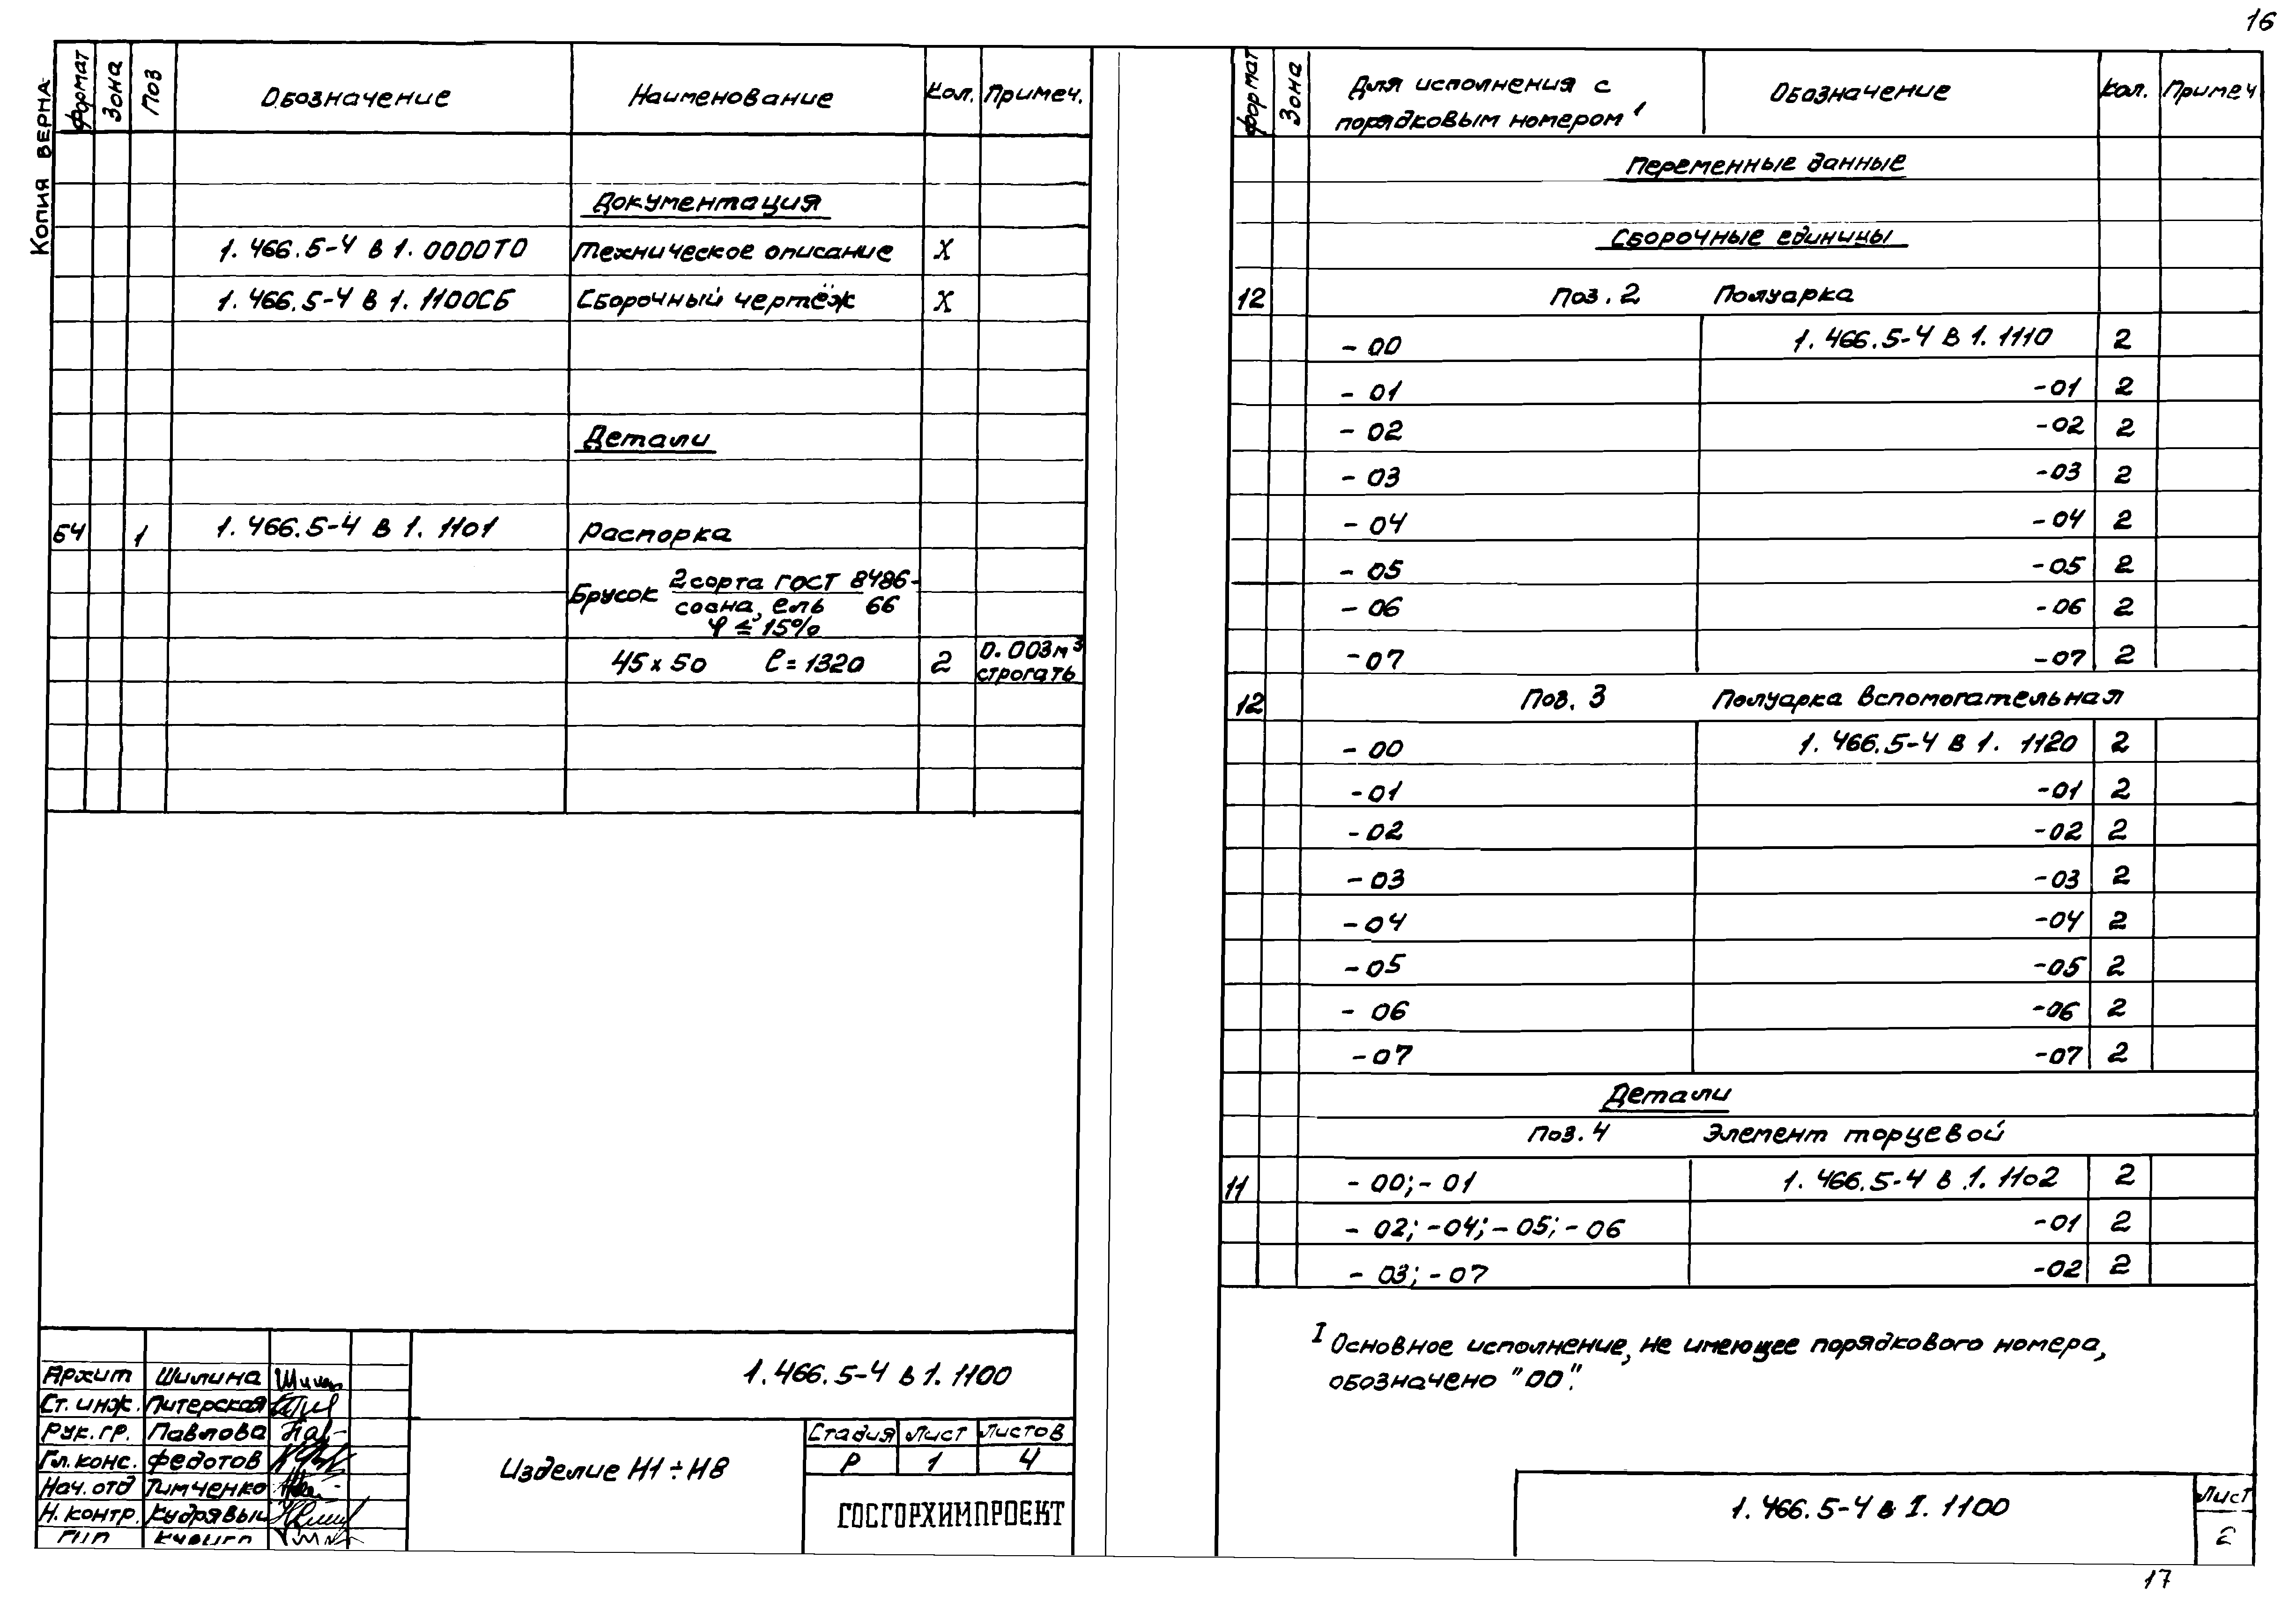 16
Копия верна
Формат Зона Поз Обозначение Наименование Кол. Примеч.
Документация
1.466.5-4 в 1.0000ТО Техническое описание X
1.466.5-4 в 1.1100СБ Сборочный чертёж X
Детали
Б4 1 1.466.5-4 в 1.1101 Распорка
Брусок 2 сорта ГОСТ 8486-
сосна, ель 66
φ ≤ 15%
45х50 ℓ=1320 2 0.003м³
строгать
Архит Шилина
Ст. инж. Питерская
Рук. гр. Павлова
Гл. конс. Федотов
Нач. отд Тимченко
Н. контр.
ГИП
1.466.5-4 в 1.1100
Изделие Н1÷Н8
Стадия Лист Листов
Р 1 4
ГОСГОРХИМПРОЕКТ
Формат Зона Для исполнения с Обозначение Кол. Примеч
порядковым номером 1
Переменные данные
Сборочные единицы
12 Поз. 2 Полуарка
-00 1.466.5-4 в 1.1110 2
-01 -01 2
-02 -02 2
-03 -03 2
-04 -04 2
-05 -05 2
-06 -06 2
-07 -07 2
12 Поз. 3 Полуарка вспомогательная
-00 1.466.5-4 в 1.1120 2
-01 -01 2
-02 -02 2
-03 -03 2
-04 -04 2
-05 -05 2
-06 -06 2
-07 -07 2
Детали
Поз. 4 Элемент торцевой
11 -00; -01 1.466.5-4 в 1.1102 2
-02; -04; -05; -06 -01 2
-03; -07 -02 2
I Основное исполнение, не имеющее порядкового номера,
обозначено "00".
1.466.5-4 в I.1100
Лист
2
17